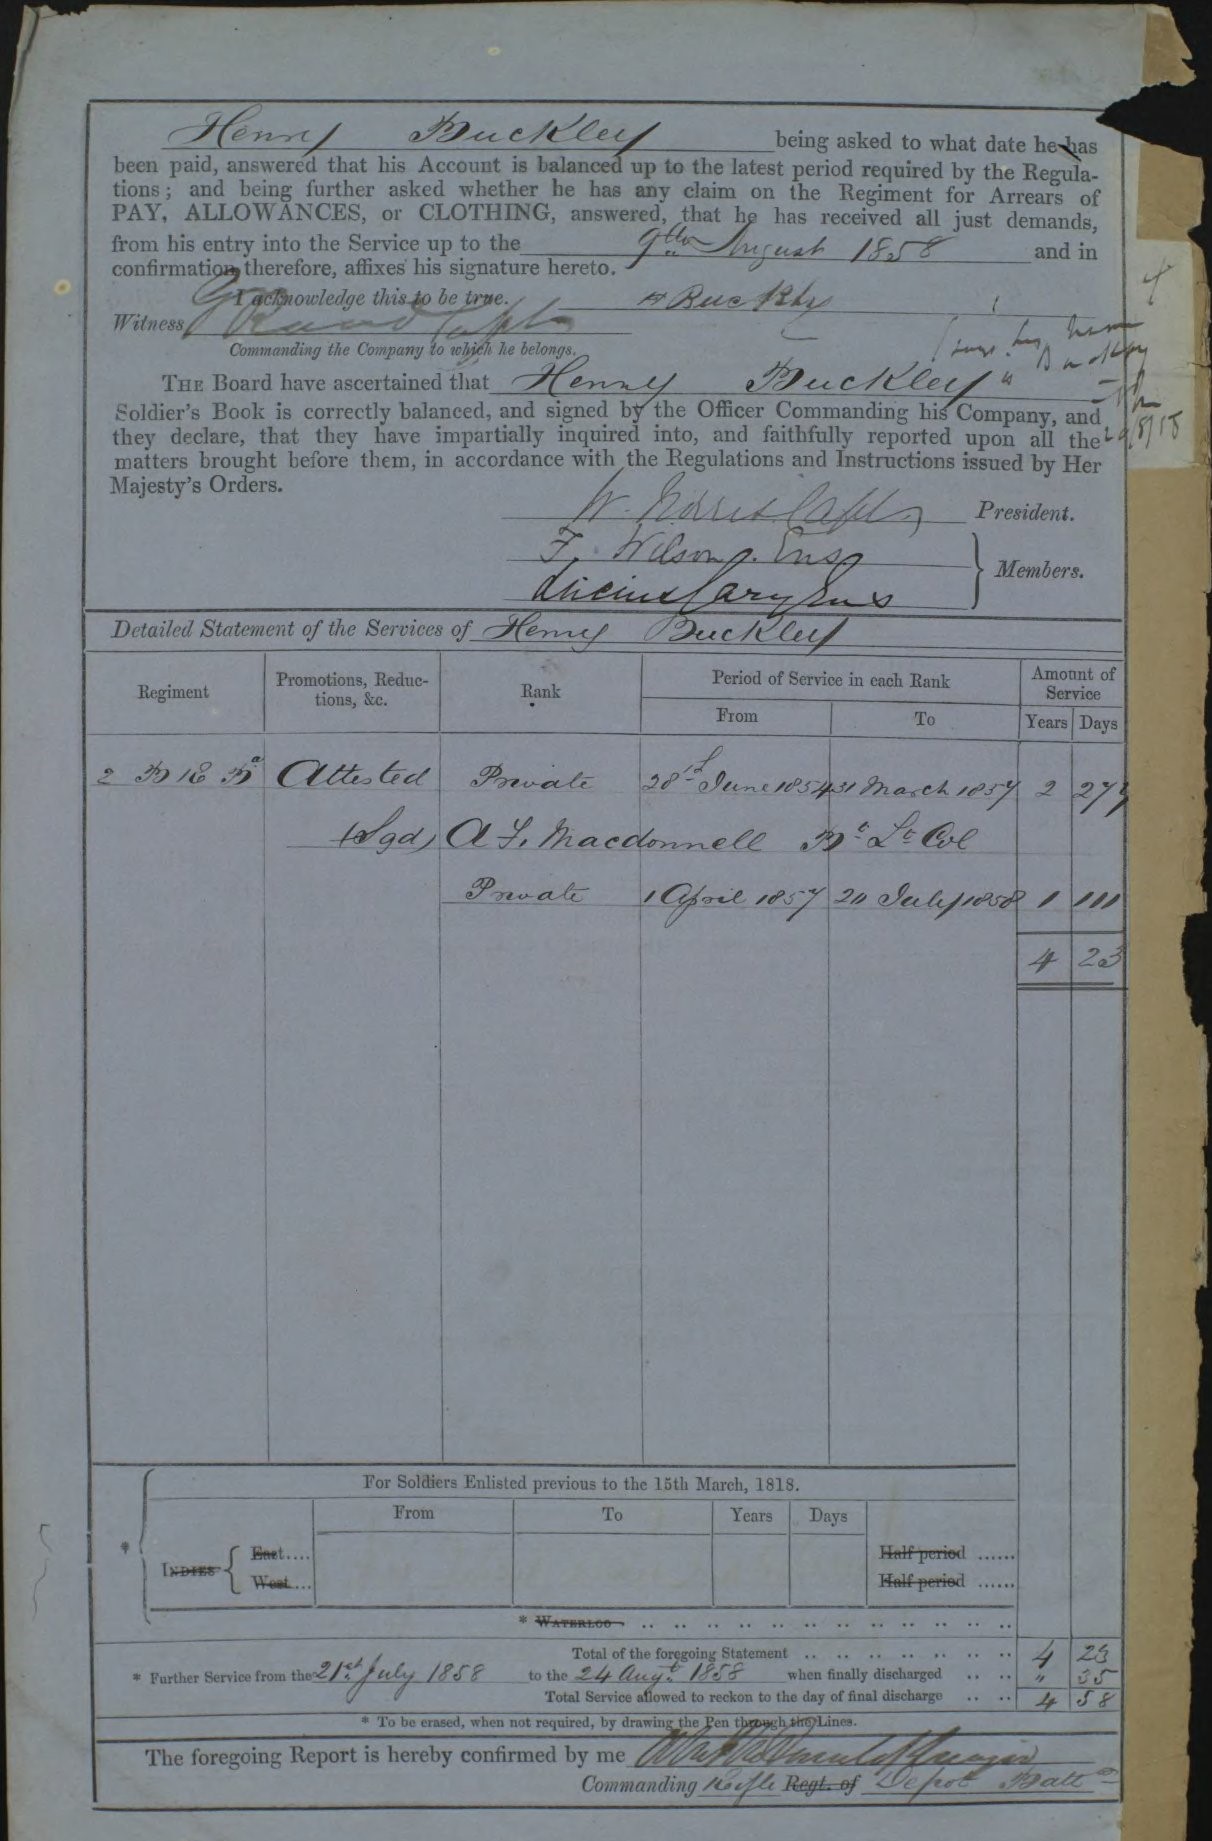 Henry Buckley being asked to what date he has
been paid, answered that his Account is balanced up to the latest period required by the Regula-
tions; and being further asked whether he has any claim on the Regiment for Arrears of
PAY, ALLOWANCES, or CLOTHING, answered, that he has received all just demands,
from his entry into the Service up to the 9th August 1858 and in
confirmation, therefore, affixes his signature hereto.
I acknowledge this to be true. H Buckley
Witness Capt
Commanding the Company to which he belongs.
THE Board have ascertained that Henry Buckley's
Soldier's Book is correctly balanced, and signed by the Officer Commanding his Company, and
they declare, that they have impartially inquired into, and faithfully reported upon all the
matters brought before them, in accordance with the Regulations and Instructions issued by Her
Majesty's Orders.
his name
Buckley
W. Norris Capt. President.
F. Wilson. Ens
Lucius Cary Ens
Members.
Detailed Statement of the Services of Henry Buckley
Regiment Promotions, Reduc-tions, &c. Rank Period of Service in each Rank Amount of Service
From To Years Days
2 B R Ba Attested Private 28th June 1854 31 March 1857 2 277
(Sgd) A F. Macdonnell Bt Lt Col
Private 1 April 1857 20 July 1858 1 111
4 23
For Soldiers Enlisted previous to the 15th March, 1818.
From To Years Days
* INDIES East.... Half period ......
West.... Half period ......
* WATERLOO .. .. .. .. .. .. .. .. .. .. .. ..
Total of the foregoing Statement .. .. .. .. .. .. .. 4 23
* Further Service from the 21st July 1858 to the 24 Augt. 1858 when finally discharged .. .. " 35
Total Service allowed to reckon to the day of final discharge .. .. 4 58
* To be erased, when not required, by drawing the Pen through the Lines.
The foregoing Report is hereby confirmed by me
Commanding Rifle Regt. of Depot Battn